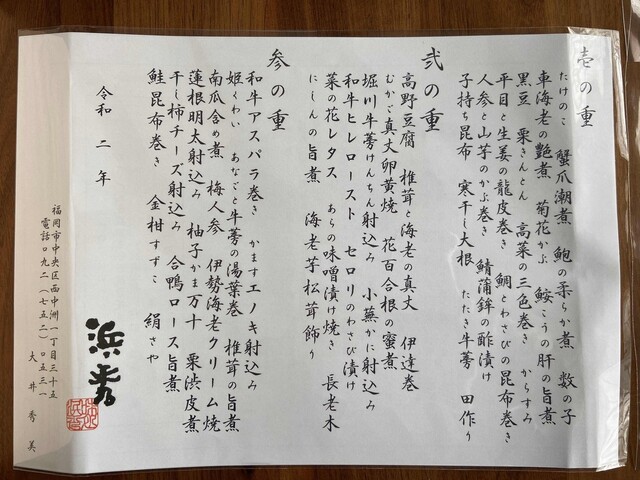 壱の重
たけのこ 蟹爪潮煮 鮑の柔らか煮 数の子
車海老の艶煮 菊花かぶ 鮟こうの肝の旨煮
黒豆 栗きんとん 高菜の三色巻き からすみ
平目と生姜の龍皮巻き 鯛とわさびの昆布巻き
人参と山芋のかぶ巻き 鯖蒲鉾の酢漬け
子持ち昆布 寒干し大根 たたき牛蒡 田作り
弐の重
高野豆腐 椎茸と海老の真丈 伊達巻
むかご真丈卵黄焼 花百合根の蜜煮
堀川牛蒡けんちん射込み 小蕪かに射込み
和牛ヒレロースト セロリのわさび漬け
菜の花レタス あらの味噌漬け焼き 長老木
にしんの旨煮 海老芋松茸飾り
参の重
和牛アスパラ巻き かますエノキ射込み
姫くわい あなごと牛蒡の湯葉巻き 椎茸の旨煮
南瓜含め煮 梅人参 伊勢海老クリーム焼
蓮根明太射込み 柚子かま万十 栗渋皮煮
干し柿チーズ射込み 合鴨ロース旨煮
鮭昆布巻き 金柑すずこ 絹さや
令和二年
浜秀
福岡市中央区西中洲一丁目三十五
電話〇九二(七五二)〇五三一
大井秀美